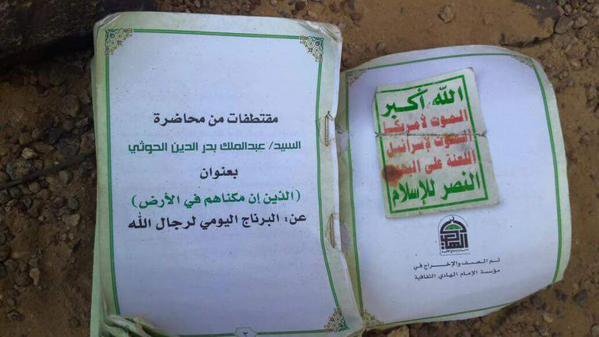 مقتطفات من محاضرة
السيد/ عبدالملك بدر الدين الحوثي
بعنوان
(الذين إن مكناهم في الأرض)
عن: البرناج اليومي لرجال الله
٢
الله أكبر
الموت لأمريكا
الموت لإسرائيل
اللعنة على اليهود
النصر للإسلام
تم الصف والإخراج في
مؤسسة الإمام الهادي الثقافية